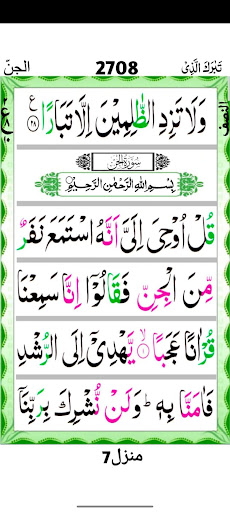 تَبٰرَكَ الَّذِىْ 2708 الجنّ
وَلَا تَزِدِ الظّٰلِمِيْنَ اِلَّا تَبَارًا ۝٢٨ ع
النصف
سُوْرَةُ الْجِنِّ
بِسْمِ اللّٰهِ الرَّحْمٰنِ الرَّحِيْمِ
قُلْ اُوْحِىَ اِلَىَّ اَنَّهُ اسْتَمَعَ نَفَرٌ
مِّنَ الْجِنِّ فَقَالُوْۤا اِنَّا سَمِعْنَا
قُرْاٰنًا عَجَبًا ۝١ۙ يَّهْدِىْۤ اِلَى الرُّشْدِ
فَاٰمَنَّا بِهٖ ؕ وَلَنْ نُّشْرِكَ بِرَبِّنَاۤ
منزل7